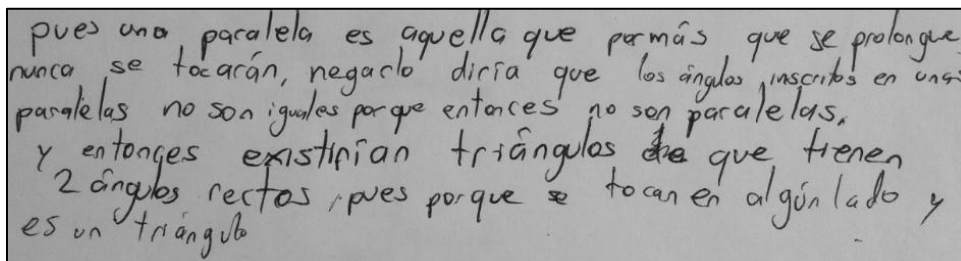 pues una paralela es aquella que por más que se prolongue
nunca se tocarán, negarlo diría que los ángulos inscritos en unas
paralelas no son iguales porque entonces no son paralelas.
y entonces existirían triángulos de que tienen
2 ángulos rectos, pues porque se tocan en algún lado y
es un triángulo